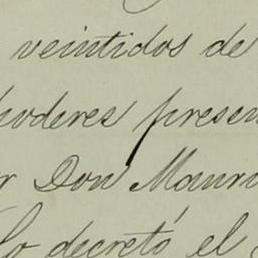 veintidos de
poderes presen
r Don Mauri
lo decretó el